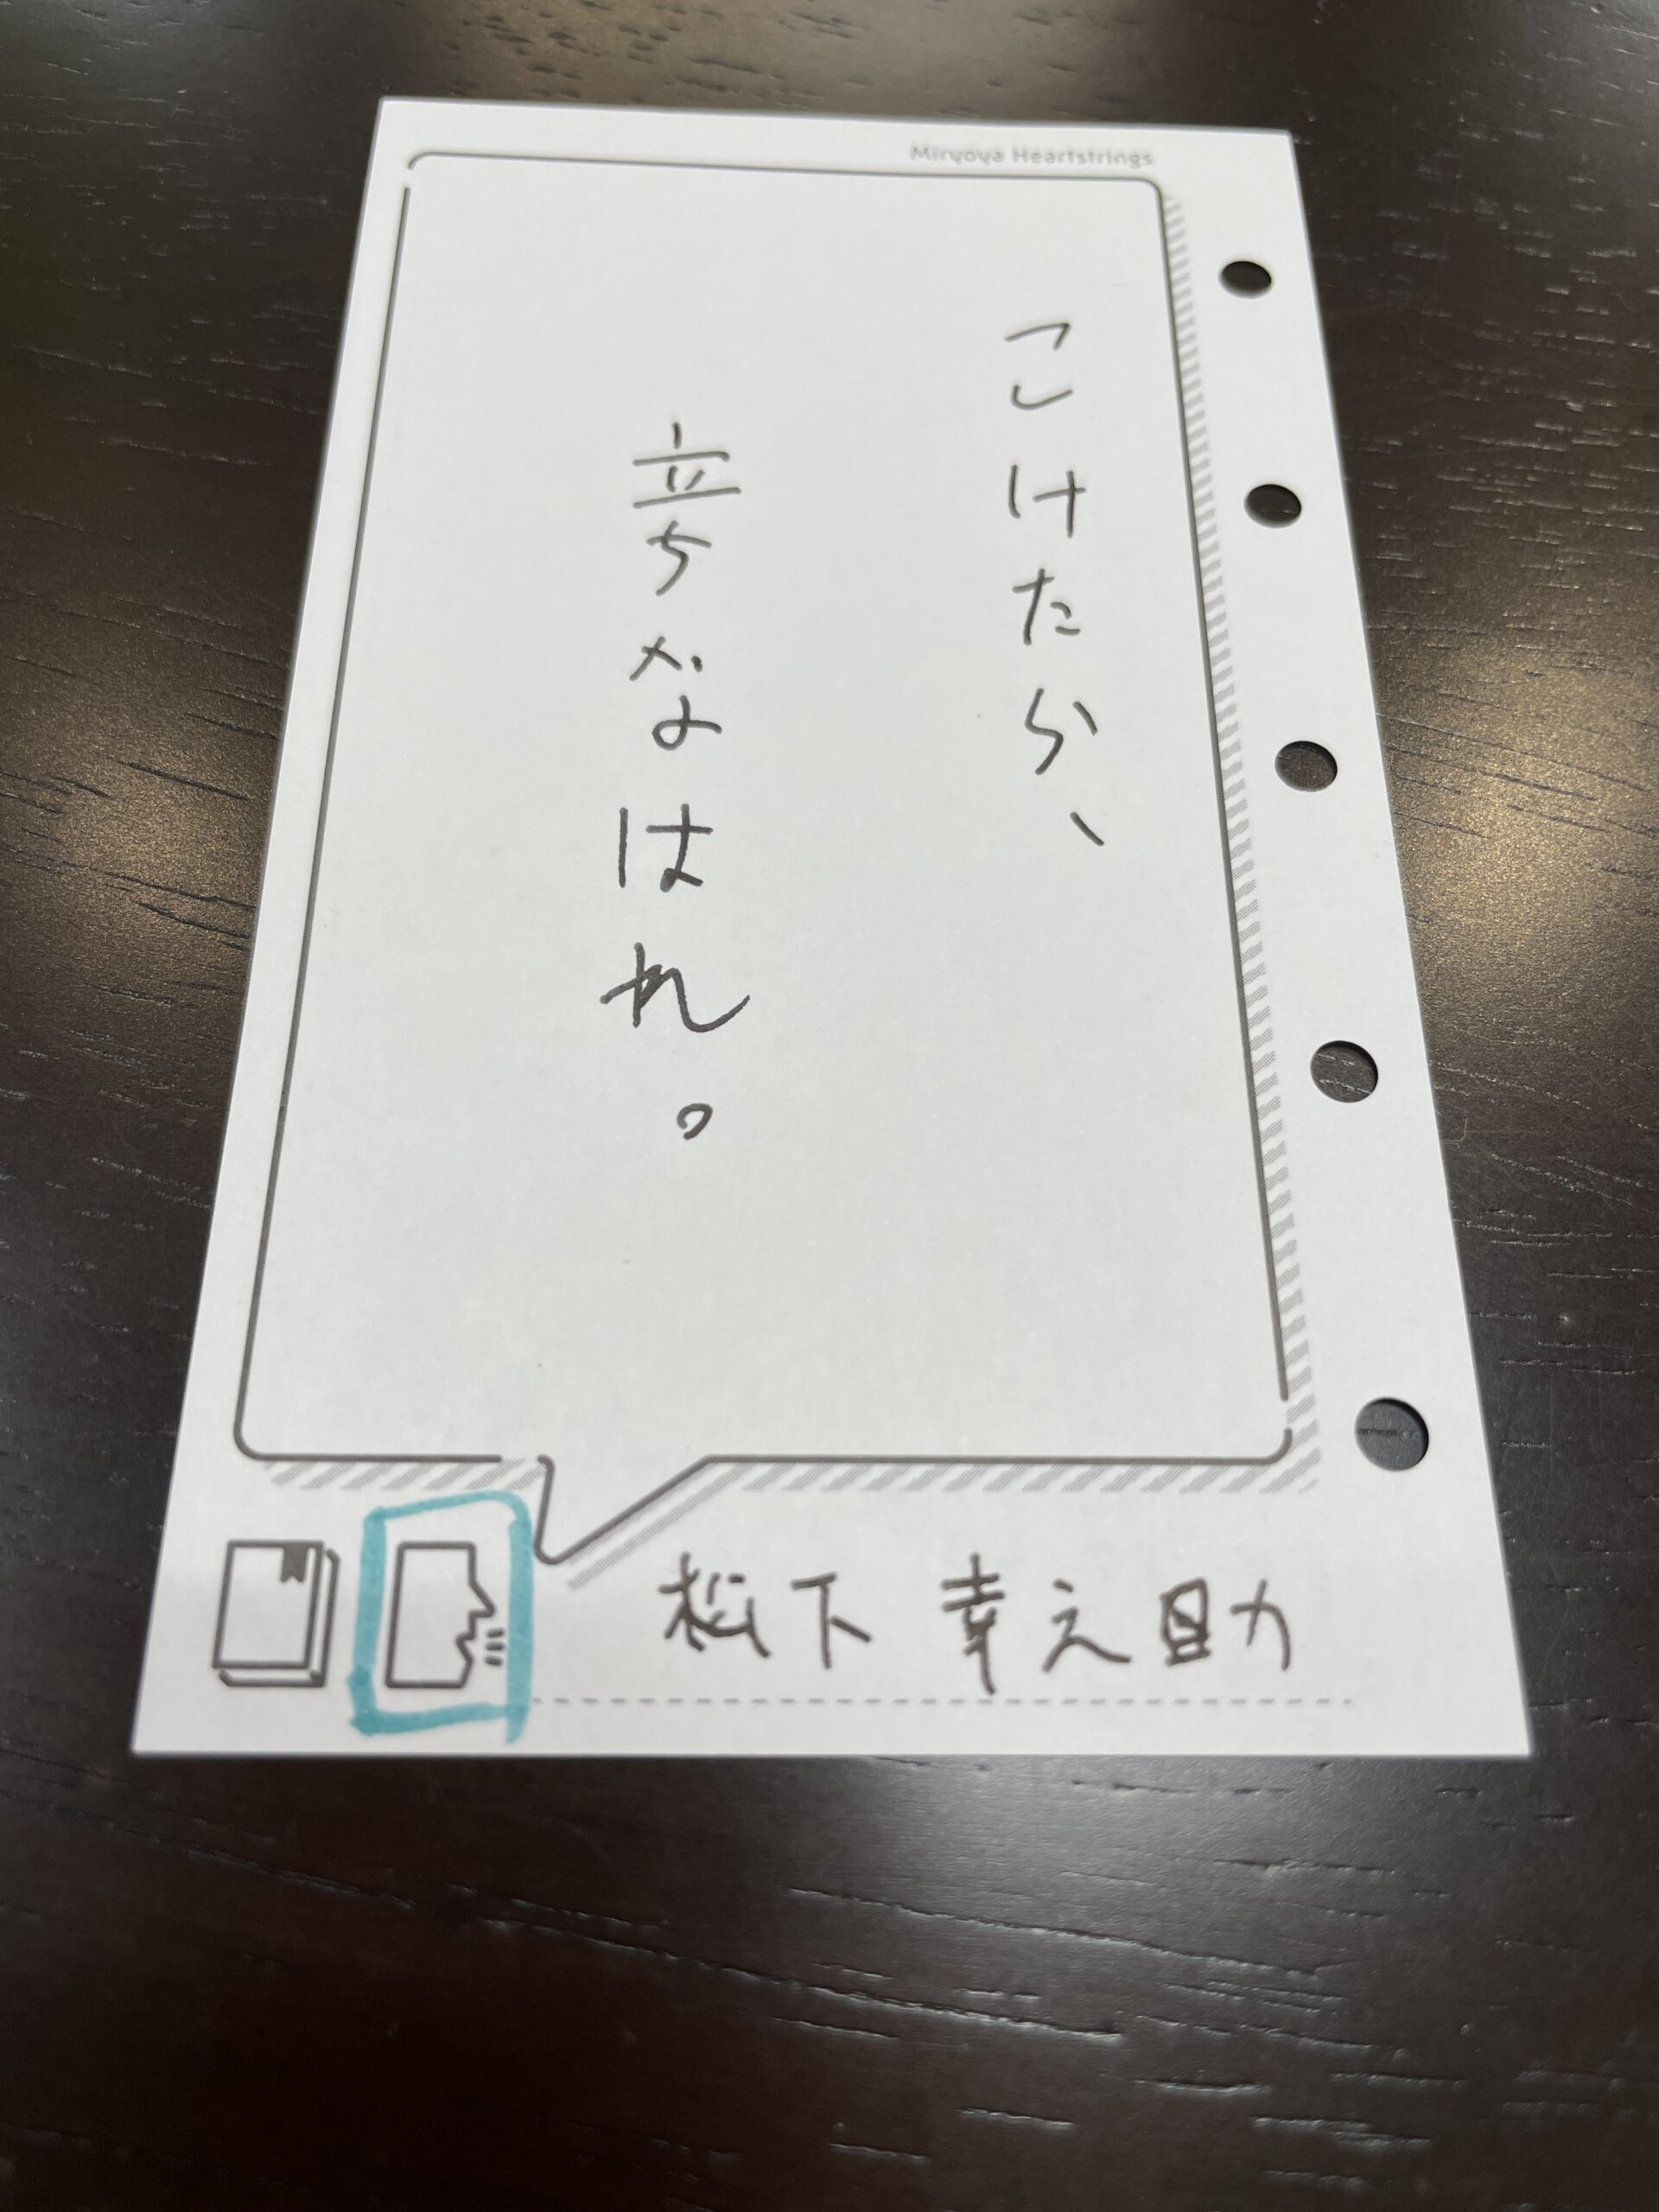 Miryoya Heartstrings
こけたら、
立ちなはれ。
松下 幸之助